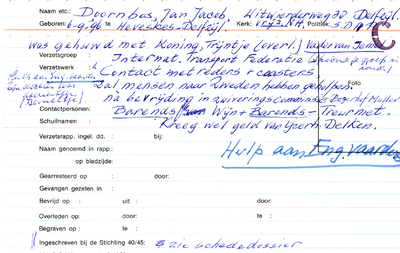 Naam etc.: Doornbos, Jan Jacob Witwerderweg 38 Delfzijl.
Geboren: 6-9-'96 te Heveskes-Delfzijl. Kerk: Vrijz. N.H. Politiek: S.D.A.P.
was gehuwd met Koning, Trijntje (overl.) Vader van
Verzetsgroep : Internat. Transport Federatie
Verzetswerk : Contact met reders + coasters
Zal mensen naar Zweden hebben geholpen.
Foto
na bevrijding in zuiveringscommissie
Contactpersonen: Barends, Wijn + Barends - Treurniet.
Schuilnaam : Kreeg veel geld van Delken.
Verzetsrapp. ingel. dd. : bij:
Naam genoemd in rapp. :
Hulp aan Eng.vaarders
op bladzijde:
Gearresteerd op : door:
Gevangen gezeten in :
Bevrijd op : uit : door:
Overleden op : door: te :
Begraven op : te :
Ingeschreven bij de Stichting 40/45: zie schededossier